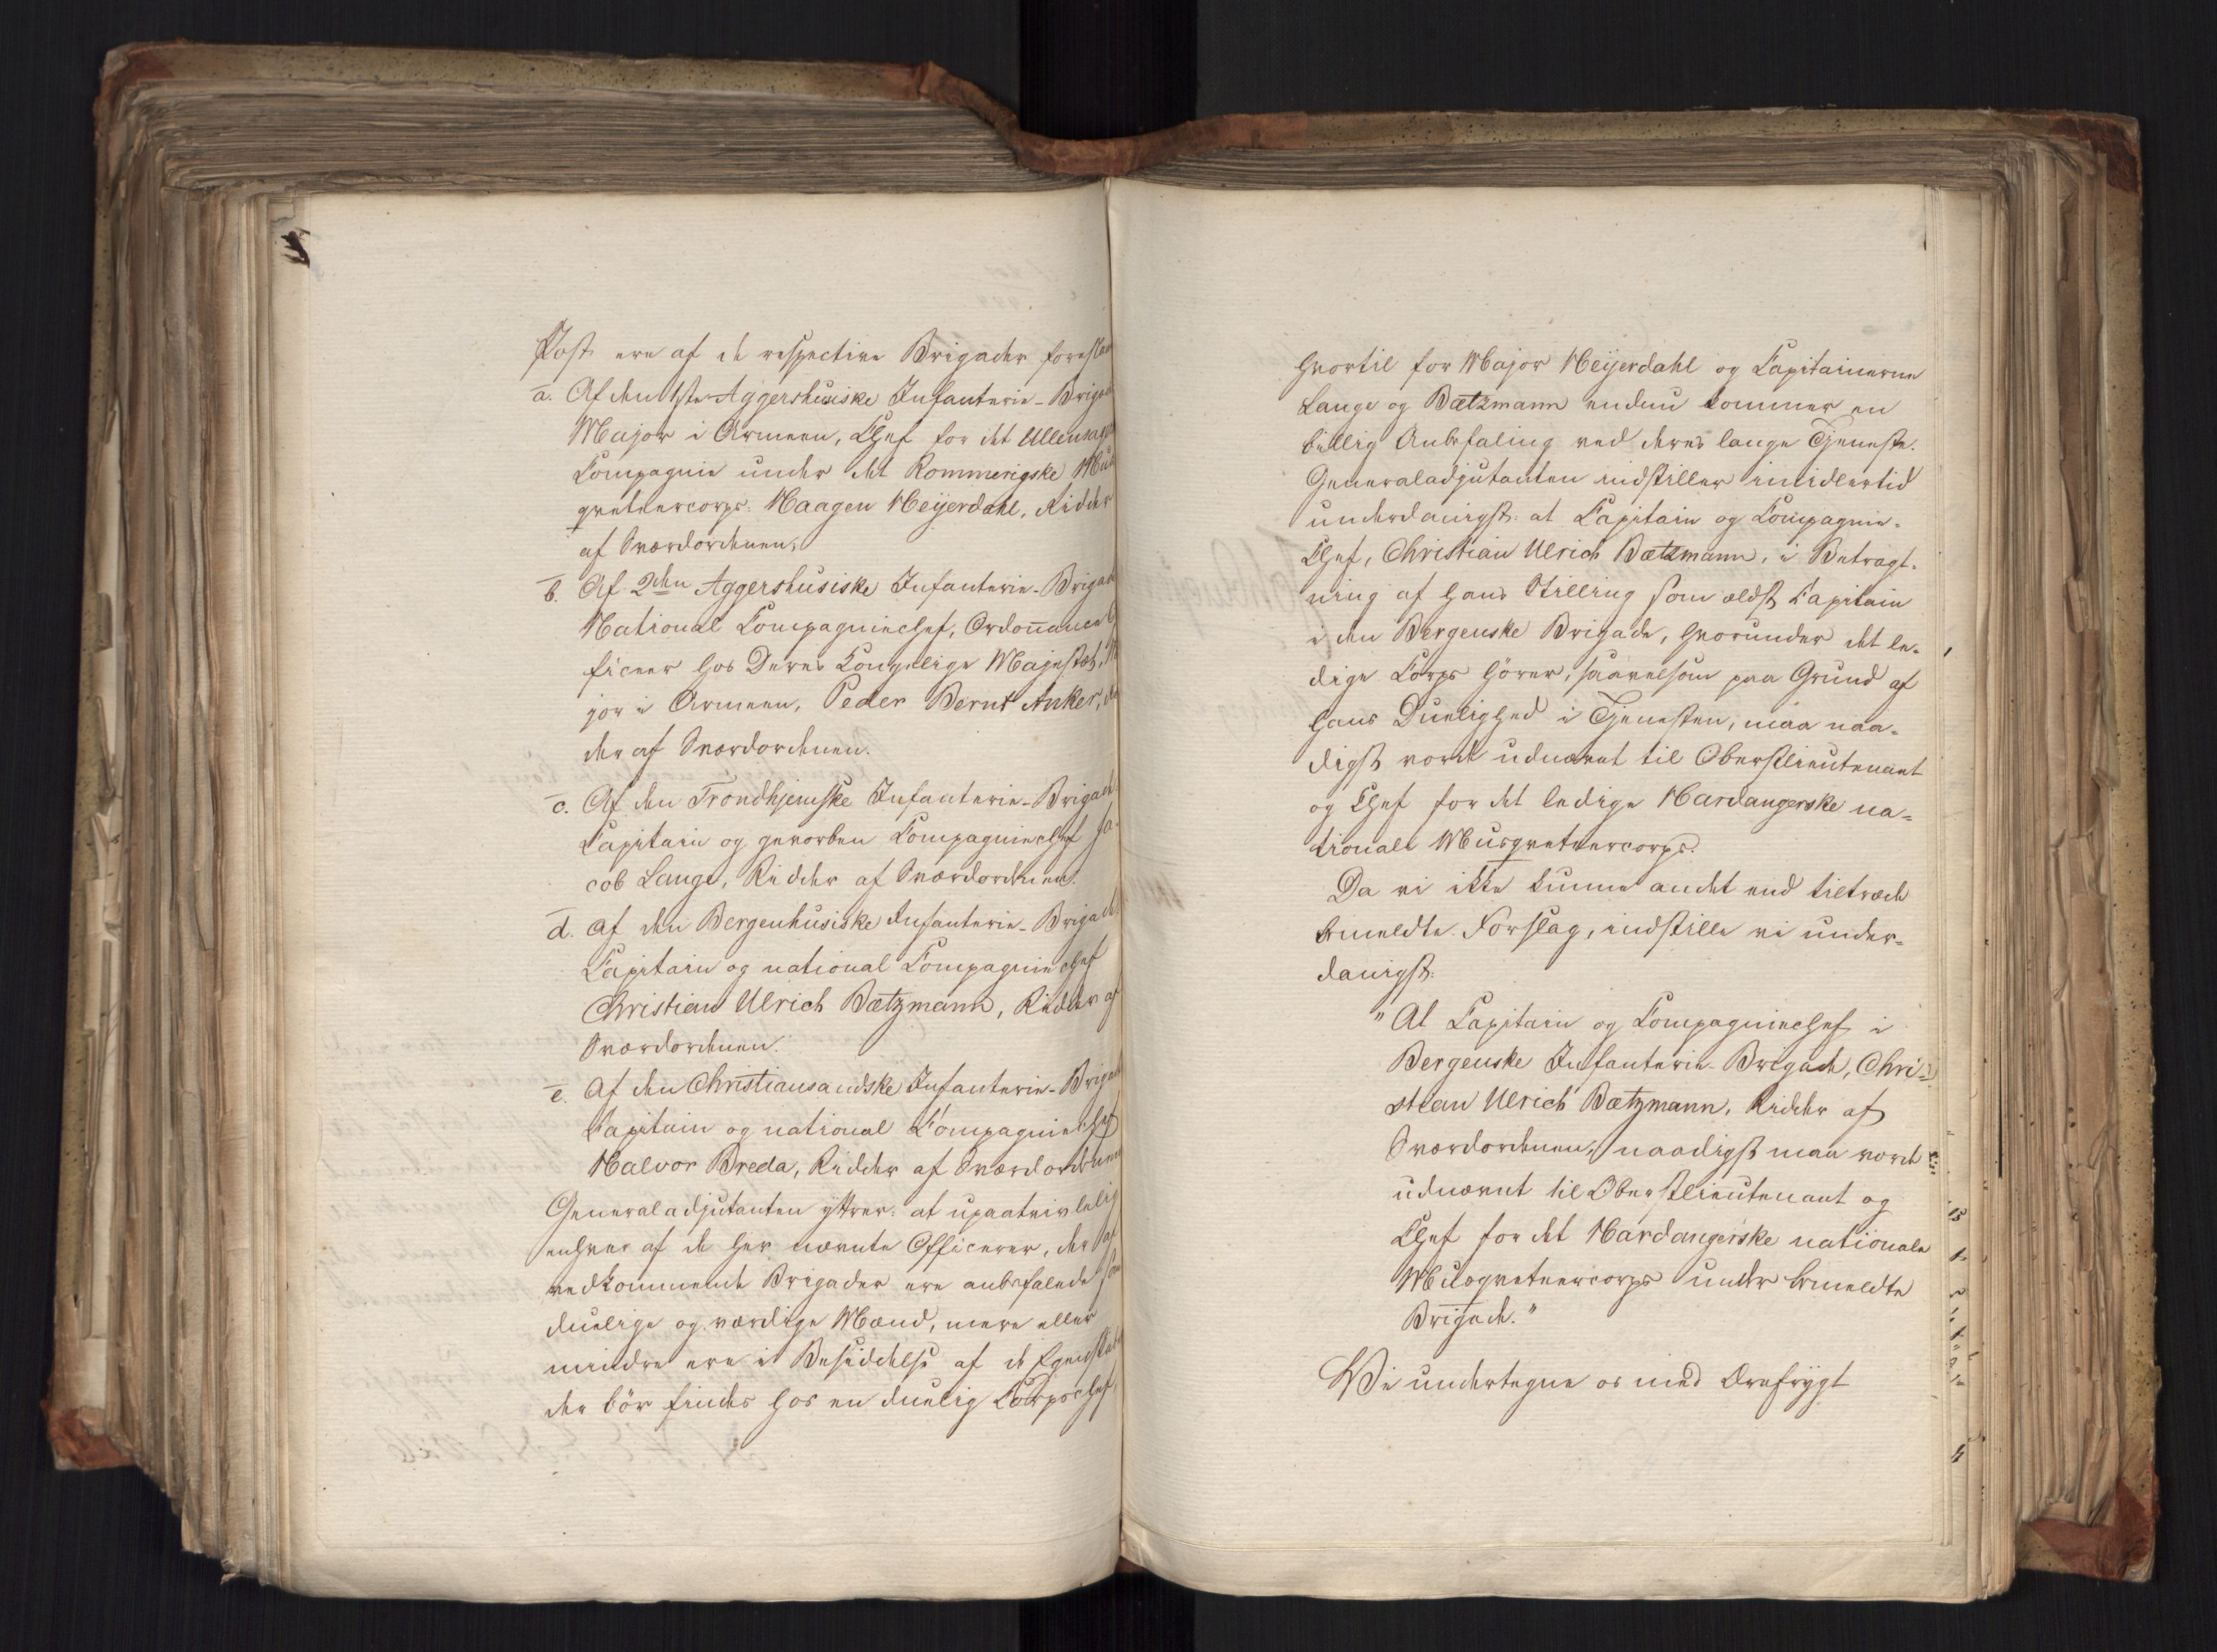 Post ere af de respective Brigader foreslaa
a. Af den 1ste Aggershusiske Infanterie-Brigad
Major i Armeen, Chef for det Ullensag
Compagnie under det Rommerigske Mus
qveteercorps: Haagen Heijerdahl, Ridder
af Sværdordenen,
b. Af 2den Aggershusiske Infanterie-Brigad
National Compagniechef, Ordonnance
ficeer hos Deres Kongelige Majestæt, M
jor i Armeen, Peder Bernt Anker, Rid
der af Sværdordenen.
c. Af den Trondhjemske Infanterie-Brigade
Capitain og gevorben Compagniechef Ja-
cob Lange, Ridder af Sværdordenen.
d. Af den Bergenhusiske Infanterie-Brigade
Capitain og national Compagniechef
Christian Ulrich Bætzmann, Ridder af
Sværdordenen.
e. Af den Christiansandske Infanterie-Brigad
Capitain og national Compagniechef
Halvor Breda, Ridder af Sværdordenen
Generaladjutanten yttrer: at upaatvivlelig
enhver af de her nævnte Officerer, der af
vedkommende Brigader ere anbefalede som
duelige og værdige Mænd, mere eller
mindre ere i Besiddelse af de Egenskab
der bør findes hos en duelig Corpschef,
hvortil for Major Heijerdahl og Capitainerne
Lange og Bætzmann endnu kommer en
billig Anbefaling ved deres lange Tjeneste.
Generaladjutanten indstiller imidlertid
underdanigst: at Capitain og Compagnie-
Chef, Christian Ulrich Bætzmann, i Betragt-
ning af hans Stilling som ældst Capitain
i den Bergenske Brigade, hvorunder det le-
dige Corps hører, saavelsom paa Grund af
hans Duelighed i Tjenesten, maa naa-
digst vorde udnævnt til Oberstlieutenant
og Chef for det ledige Hardangerske na-
tionale Musqveteercorps.
Da vi ikke kunne andet end tiltræde
bemeldte Forslag, indstille vi under-
danigst:
"At Capitain og Compagniechef i
Bergenske Infanterie-Brigade, Chri-
stian Ulrich Bætzmann, Ridder af
Sværdordenen, naadigst maa vorde
udnævnt til Oberstlieutenant og
Chef for det Hardangerske nationale
Musqveteercorps under bemeldte
Brigade."
Vi undertegne os med Ærefrygt